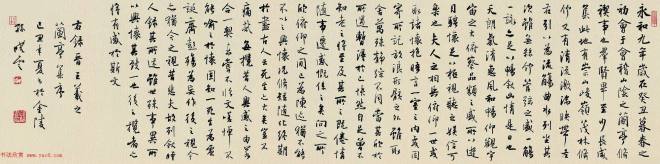 永和九年歲在癸丑暮春之
初會于會稽山陰之蘭亭修
禊事也群賢畢至少長咸
集此地有崇山峻嶺茂林脩
竹又有清流激湍映帶左
右引以為流觴曲水列坐其
次雖無絲竹管弦之盛一觴
一詠亦足以暢敘幽情是日也
天朗氣清惠風和暢仰觀宇
宙之大俯察品類之盛所以遊
目騁懷足以極視聽之娛信可
樂也夫人之相與俯仰一世或
取諸懷抱悟言一室之內或因
寄所託放浪形骸之外雖趣
舍萬殊靜躁不同當其欣於
所遇暫得於己快然自足不
知老之將至及其所之既倦情
隨事遷感慨係之矣向之所
欣俯仰之間已為陳迹猶不能
不以之興懷況脩短隨化終期
於盡古人云死生亦大矣豈不
痛哉每攬昔人興感之由若
合一契未嘗不臨文嗟悼不
能喻之於懷固知一死生為虛
誕齊彭殤為妄作後之視今
亦猶今之視昔悲夫故列敘時
人錄其所述雖世殊事異所
以興懷其致一也後之攬者亦
將有感於斯文
右錄晉王羲之
蘭亭集序
己丑年夏於金陵
孫曉雲